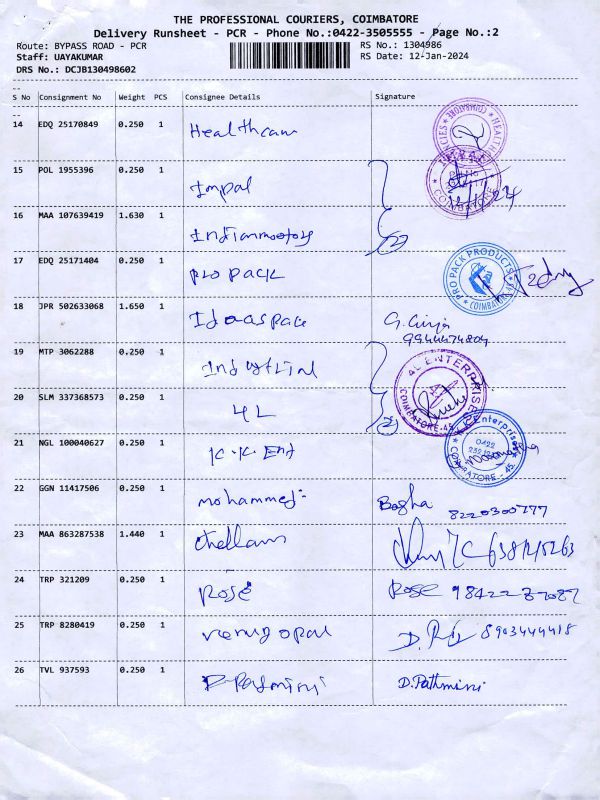 THE PROFESSIONAL COURIERS, COIMBATORE
Delivery Runsheet - PCR - Phone No.:0422-3505555 - Page No.:2
Route: BYPASS ROAD - PCR RS No.: 1304986
Staff: UAYAKUMAR RS Date: 12-Jan-2024
DRS No.: DCJB130498602
--
S No Consignment No Weight PCS Consignee Details Signature
--
14 EDQ 25170849 0.250 1 Healthcam
15 POL 1955396 0.250 1 Impal
COIMBATORE
16 MAA 107639419 1.630 1 Indianmootory
17 EDQ 25171404 0.250 1 Pro pack PRO PACK PRODUCTS COIMBATORE
18 JPR 502633068 1.650 1 Ideaspace G. Girija
9944474804
19 MTP 3062288 0.250 1 Industrial
20 SLM 337368573 0.250 1 4L 4L ENTERPRISES COIMBATORE-45
21 NGL 100040627 0.250 1 K.K. Ent Enterprises 0422 COIMBATORE - 45.
22 GGN 11417506 0.250 1 mohammed: Basha 8220300777
23 MAA 863287538 1.440 1 Chellam
24 TRP 321209 0.250 1 Rose Rose
25 TRP 8280419 0.250 1 venugopal 8903444418
26 TVL 937593 0.250 1 P. Padmini D. Pathmini